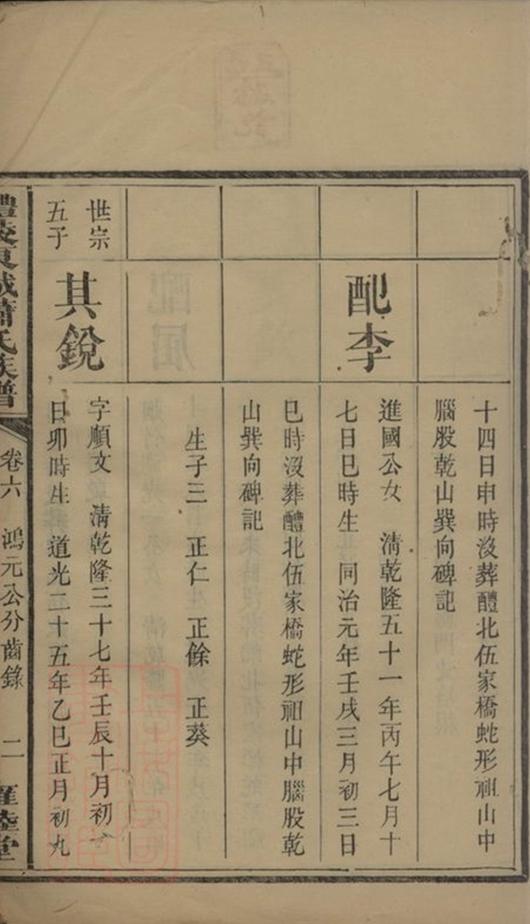 十四日申時沒葬醴北伍家橋蛇形祖山中
腦股乾山巽向碑記
配李
進國公女 清乾隆五十一年丙午七月十
七日巳時生 同治元年壬戌三月初三日
巳時沒葬醴北伍家橋蛇形祖山中腦股乾
山巽向碑記
生子三 正仁 正餘 正葵
世宗
五子
其銳
字順文 清乾隆三十七年壬辰十月初
日卯時生 道光二十五年乙巳正月初九
醴陵東城蕭氏族譜
卷六 鴻元公分齒錄 二
睦堂